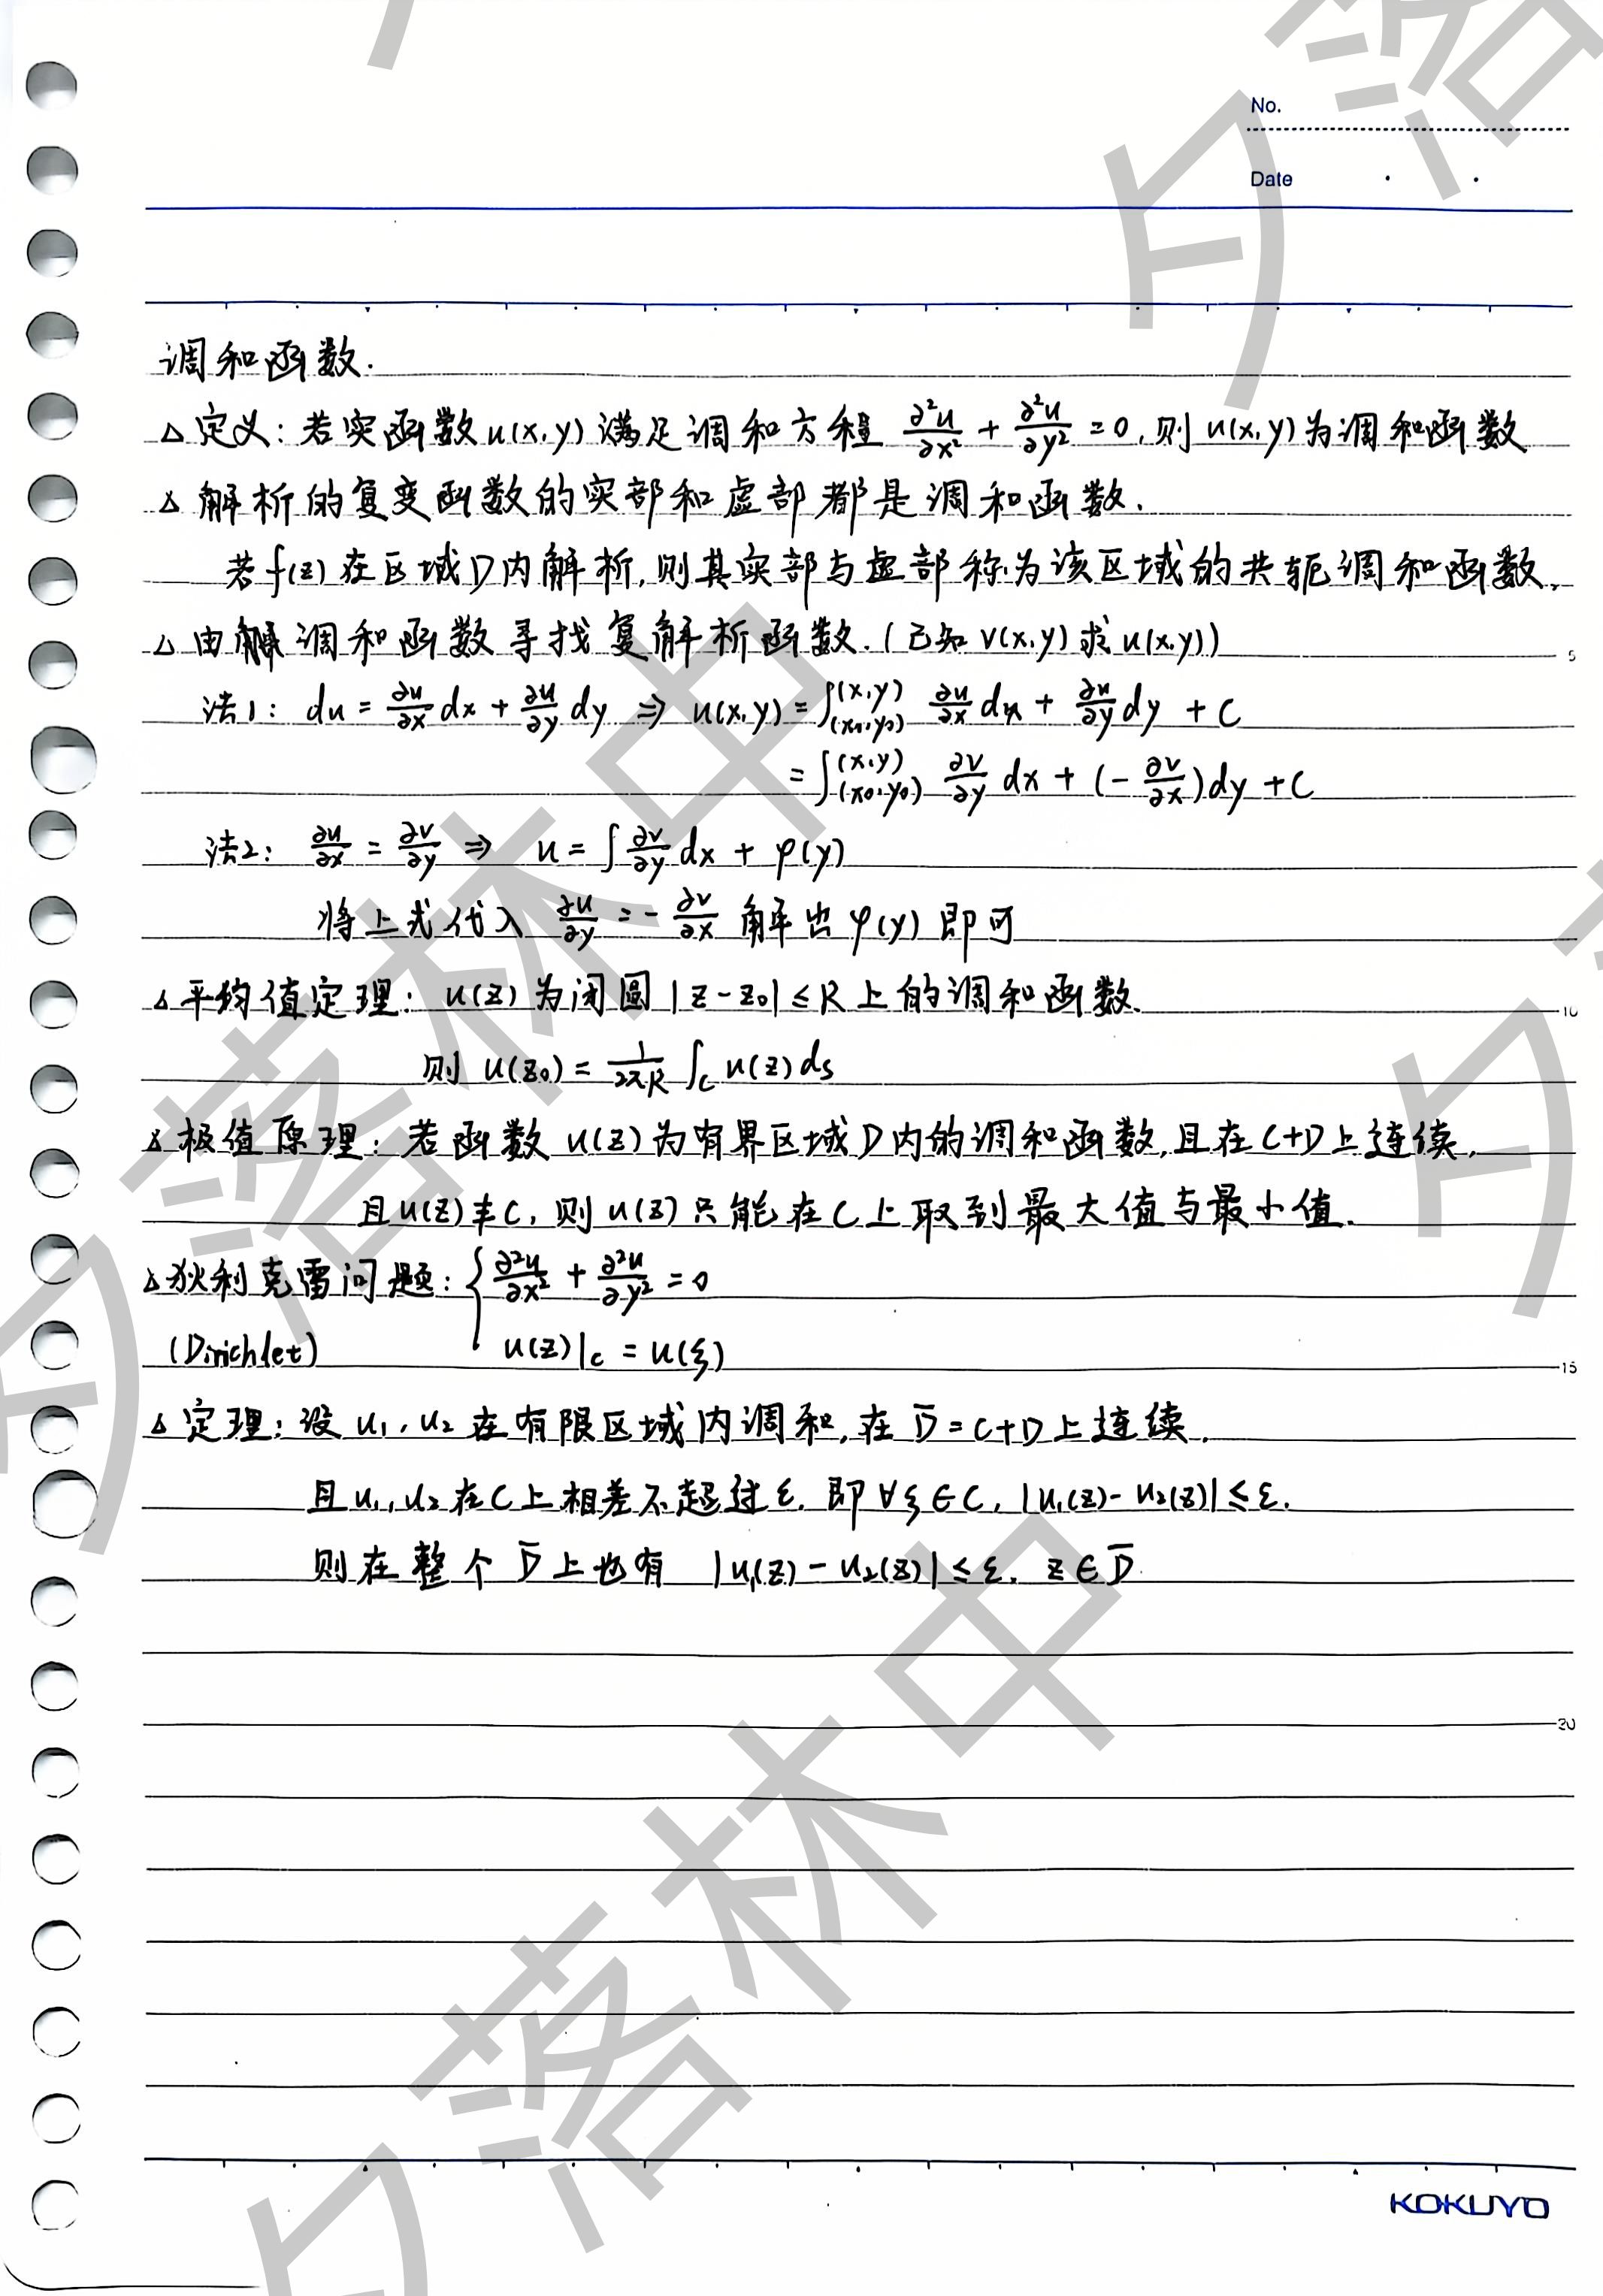 No.
Date
调和函数.
△ 定义: 若实函数 u(x,y) 满足调和方程 ∂²u/∂x² + ∂²u/∂y² = 0, 则 u(x,y) 为调和函数
△ 解析的复变函数的实部和虚部都是调和函数.
若 f(z) 在区域D内解析, 则其实部与虚部称为该区域的共轭调和函数.
△ 由调和函数寻找复解析函数. (已知 v(x,y) 求 u(x,y))
法1: du = ∂u/∂x dx + ∂u/∂y dy ⇒ u(x,y) = ∫_(x₀,y₀)^(x,y) ∂u/∂x dx + ∂u/∂y dy + C
= ∫_(x₀,y₀)^(x,y) ∂v/∂y dx + (-∂v/∂x) dy + C
法2: ∂u/∂x = ∂v/∂y ⇒ u = ∫ ∂v/∂y dx + φ(y)
将上式代入 ∂u/∂y = -∂v/∂x 解出 φ(y) 即可
△ 平均值定理: u(z) 为闭圆 |z-z₀| ≤ R 上的调和函数.
则 u(z₀) = 1/2πR ∫_C u(z) ds
△ 极值原理: 若函数 u(z) 为有界区域D内的调和函数, 且在 C+D 上连续,
且 u(z) ≢ C, 则 u(z) 只能在 C 上取到最大值与最小值.
△ 狄利克雷问题: { ∂²u/∂x² + ∂²u/∂y² = 0
(Dirichlet) u(z)|_C = u(ξ)
△ 定理: 设 u₁, u₂ 在有限区域内调和, 在 D̄ = C+D 上连续.
且 u₁, u₂ 在 C 上相差不超过 ε. 即 ∀ξ∈C, |u₁(z) - u₂(z)| ≤ ε.
则在整个 D̄ 上也有 |u₁(z) - u₂(z)| ≤ ε. z∈D̄
5
10
15
20
KOKUYO
夕落林中
夕落林中